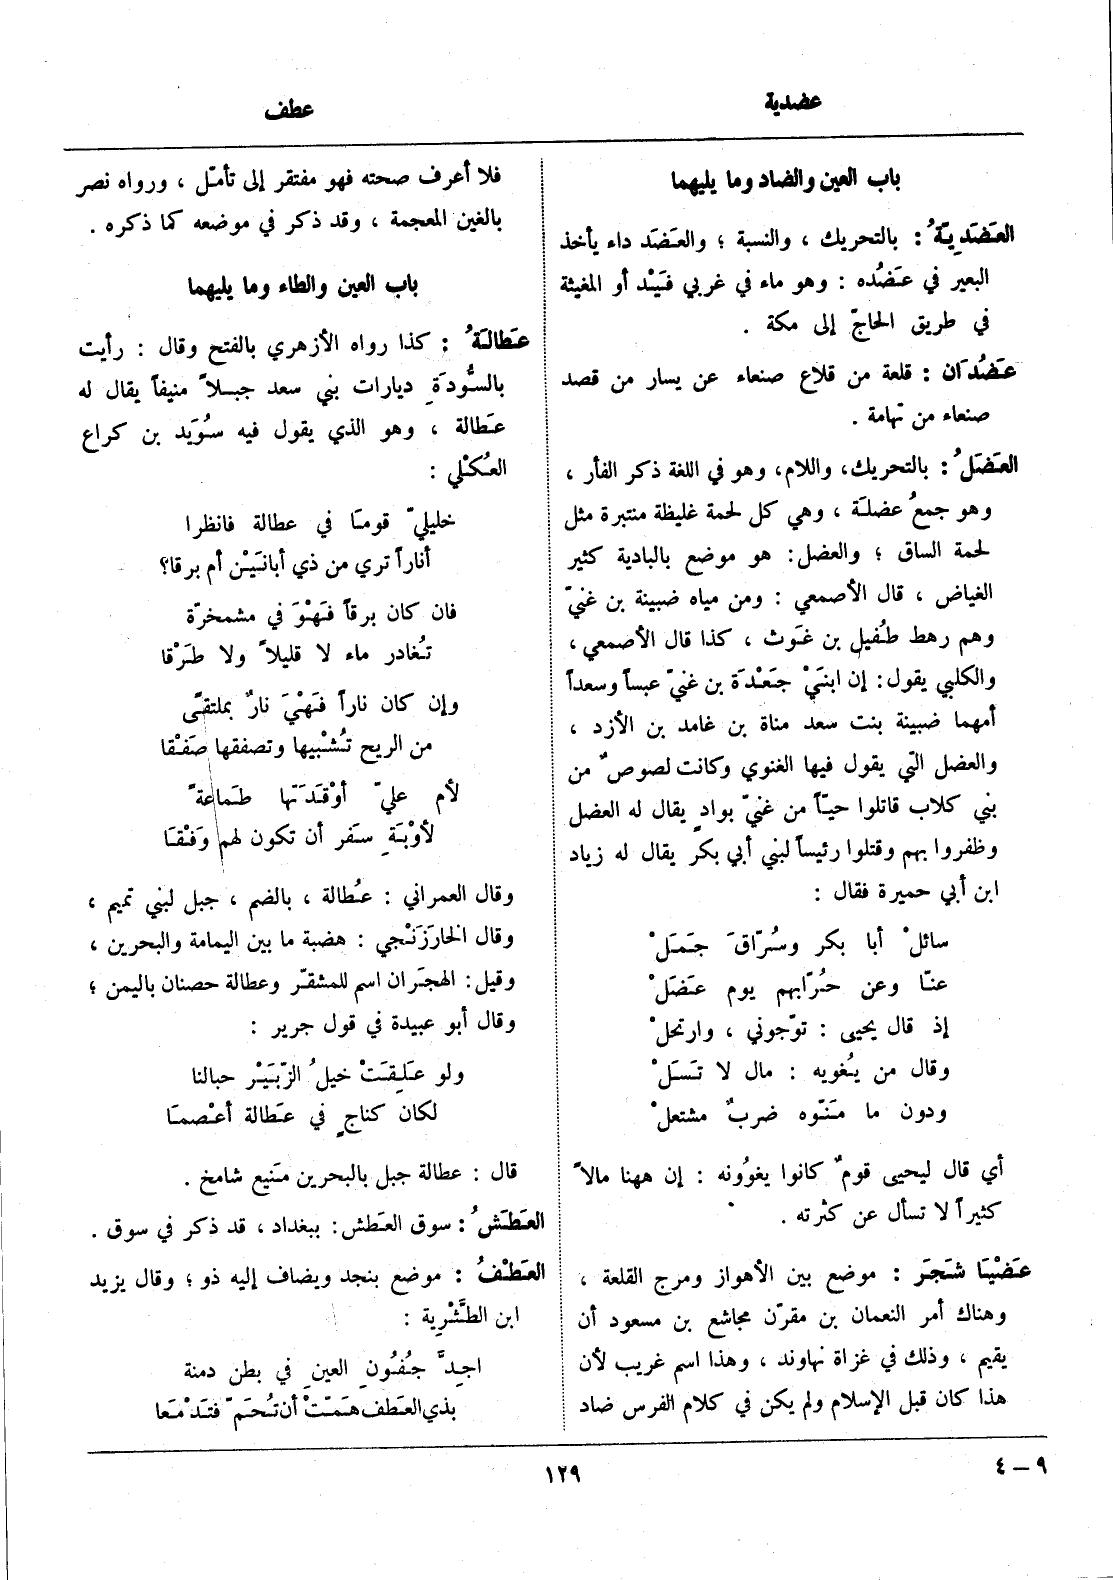 عضدية
عطف
باب العين والضاد وما يليهما
العَضَدِيّةُ : بالتحريك ، والنسبة ؛ والعَضَد داء يأخذ
البعير في عَضُده : وهو ماء في غربي فَيْد أو المغيثة
في طريق الحاجّ إلى مكة .
عَضُدَان : قلعة من قلاع صنعاء عن يسار من قصد
صنعاء من تهامة .
العَضَلُ : بالتحريك، واللام، وهو في اللغة ذكر الفأر ،
وهو جمعُ عضلَة ، وهي كل لحمة غليظة منتبرة مثل
لحمة الساق ؛ والعضل: هو موضع بالبادية كثير
الغياض ، قال الأصمعي : ومن مياه ضبينة بن غنيّ
وهم رهط طُفيل بن غَوث ، كذا قال الأصمعي ،
والكلبي يقول: إن ابنَيْ جَعْدَة بن غنيّ عبساً وسعداً
أمهما ضبينة بنت سعد مناة بن غامد بن الأزد ،
والعضل التي يقول فيها الغنوي وكانت لصوصٌ من
بني كلاب قاتلوا حيّاً من غنيّ بوادٍ يقال له العضل
وظفروا بهم وقتلوا رئيساً لبني أبي بكر يقال له زياد
ابن أبي حميرة فقال :
سائلْ أبا بكر وسُرّاقَ جَمَلْ
عنّا وعن حُرّابهم يوم عَضَلْ
إذ قال يحيى : توّجوني ، وارتحلْ
وقال من يُغويه : مال لا تَسَلْ
ودون ما مَنّوه ضربٌ مشتعلْ
أي قال ليحيى قومٌ كانوا يغوُونه : إن ههنا مالاً
كثيراً لا تسأل عن كثرته .
عَضْيَا شَجَر : موضع بين الأهواز ومرج القلعة ،
وهناك أمر النعمان بن مقرّن مجاشع بن مسعود أن
يقيم ، وذلك في غزاة نهاوند ، وهذا اسم غريب لأن
هذا كان قبل الإسلام ولم يكن في كلام الفرس ضاد
فلا أعرف صحته فهو مفتقر إلى تأمّل ، ورواه نصر
بالغين المعجمة ، وقد ذكر في موضعه كما ذكره .
باب العين والطاء وما يليهما
عَطالَةُ : كذا رواه الأزهري بالفتح وقال : رأيت
بالسُّودَةِ ديارات بني سعد جبلاً منيفاً يقال له
عَطالة ، وهو الذي يقول فيه سُوَيد بن كراع
العُكْلي :
خليليّ قومَا في عطالة فانظرا
أناراً تري من ذي أبانَيْن أم برقا؟
فان كان برقاً فَهْوَ في مشمخرّة
تُغادر ماء لا قليلاً ولا طَرْقا
وإن كان ناراً فَهْيَ نارٌ بملتقًى
من الريح تُشْبيها وتصفقها صَفْقا
لأم عليّ أوْقَدَتها طَماعةً
لأوْبَةِ سَفر أن تكون لهم وَفْقَا
وقال العمراني : عُطالة ، بالضم ، جبل لبني تميم ،
وقال الخارْزَنْجي : هضبة ما بين اليمامة والبحرين ،
وقيل: الهجَران اسم للمشقّر وعطالة حصنان باليمن ؛
وقال أبو عبيدة في قول جرير :
ولو عَلِقَتْ خيلُ الزّبَيْر حبالنا
لكان كناجٍ في عَطالة أعْصمَا
قال : عطالة جبل بالبحرين مَنيع شامخ .
العَطَشُ : سوق العَطش : ببغداد ، قد ذكر في سوق .
العَطْفُ : موضع بنجد ويضاف إليه ذو ؛ وقال يزيد
ابن الطَّثْرية :
اجِدَّ جُفُونِ العينِ في بطن دمنة
بذي العَطف هَمّتْ أن تُحَمّ فتَدْمَعا
٩ – ٤
١٢٩